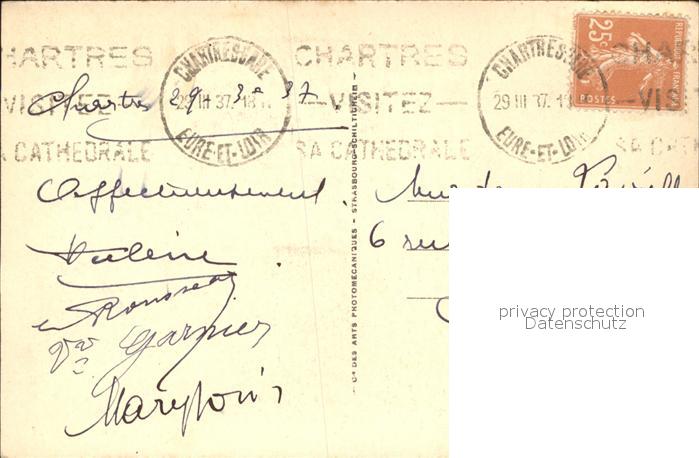 CHARTRES
VISITEZ
SA CATHEDRALE
CHARTRES GARE
29 III 37. 18
EURE-ET-LOIR
CHARTRES
VISITEZ
SA CATHEDRALE
CHARTRES GARE
29 III 37. 18
EURE-ET-LOIR
CHARTRES
VISITEZ
SA CATHEDRALE
25c
REPUBLIQUE FRANÇAISE
POSTES
Chartres 29 3e 37.
Affectueusement
Rousseau
Vve Garnier
6 rue
Cie DES ARTS PHOTOMECANIQUES - STRASBOURG-SCHILTIGHEIM
privacy protection
Datenschutz